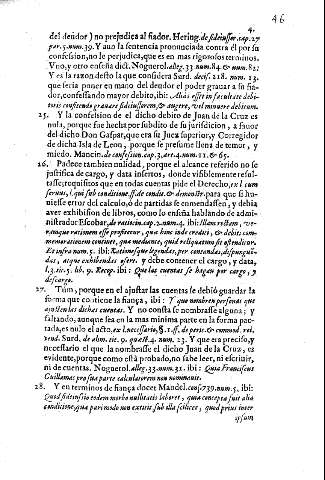 46
4.
del deudor) no prejudica al fiador. Hering. de fideiussor. cap. 27
par. 5. num. 39. Y aun la sentencia pronunciada contra él por su
confession, no le perjudica, que es en mas rigorosos terminos.
Vno, y otro enseña dict. Noguerol. alleg. 33. num. 84. & num. 82.
Y es la razon desto la que considera Surd. decis. 218. num. 13.
que seria poner en mano del deudor el poder grauar a su fia-
dor, confessando mayor debito, ibi: Aliàs esset in facultate debi-
toris confitendo grauare fideiussorem, & augere, vel minuere debitum.
25. Y la confession de el dicho debito de Juan de la Cruz es
nula, porque fue hecha por subdito de su jurisdicion, a fauor
del dicho Don Gaspar, que era su Juez superior, y Corregidor
de dicha Isla de Leon, porque se presume llena de temor, y
miedo. Mancin. de confession. cap. 3. art. 4. num. 11. & 65.
26. Padece tambien nulidad, porque el alcance referido no se
justifica de cargo, y data insertos, donde visiblemente resul-
tasse; requisitos que en todas cuentas pide el Derecho, ex l. cum
seruus, l. qui sub conditione ff. de condit. & demonstr. para que si hu-
uiesse error del calculo, ò de partidas se enmendassen, y debia
auer exhibision de libros, como lo enseña hablando de admi-
nistrador Escobar, de ratiocin. cap. 2. num. 4. ibi:
num. 5. ibi: Rationesque legendas, per contandas, dispungẽ-
das, atque exhibendas esse. y debe contener el cargo, y data,
l. 3. tit. 5. lib. 9. Recop. ibi: Que las cuentas se hagan por cargo, y
descargo.
27. Tũm, porque en el ajustar las cuentas se debiò guardar la
forma que contiene la fiança, ibi: Y que nombren personas que
ajusten las dichas cuentas. Y no consta se nombrasse alguna; y
faltando, aunque sea en la mas minima parte en la forma pac-
tada, es nulo el acto,
Surd. de alim. tit. 9. quæst. 4. num. 23. Y que era preciso, y
necessario el que la nombrasse el dicho Juan de la Cruz, es
evidente, porque como està probado, no sabe leer, ni escriuir,
ni de cuentas. Noguerol. alleg. 33. num. 31. ibi: Quia Franciscus
Guillamas pro sua parte calculatorem non nominauit.
28. Y en terminos de fiança docet Mandel. cons. 739. num. 5. ibi:
Quod fideiussio eodem morbo nullitatis laboret, quia concepta fuit alia
conditione, quia pari modo non extitit sub illa scilicet, quod prius inter
ipsum